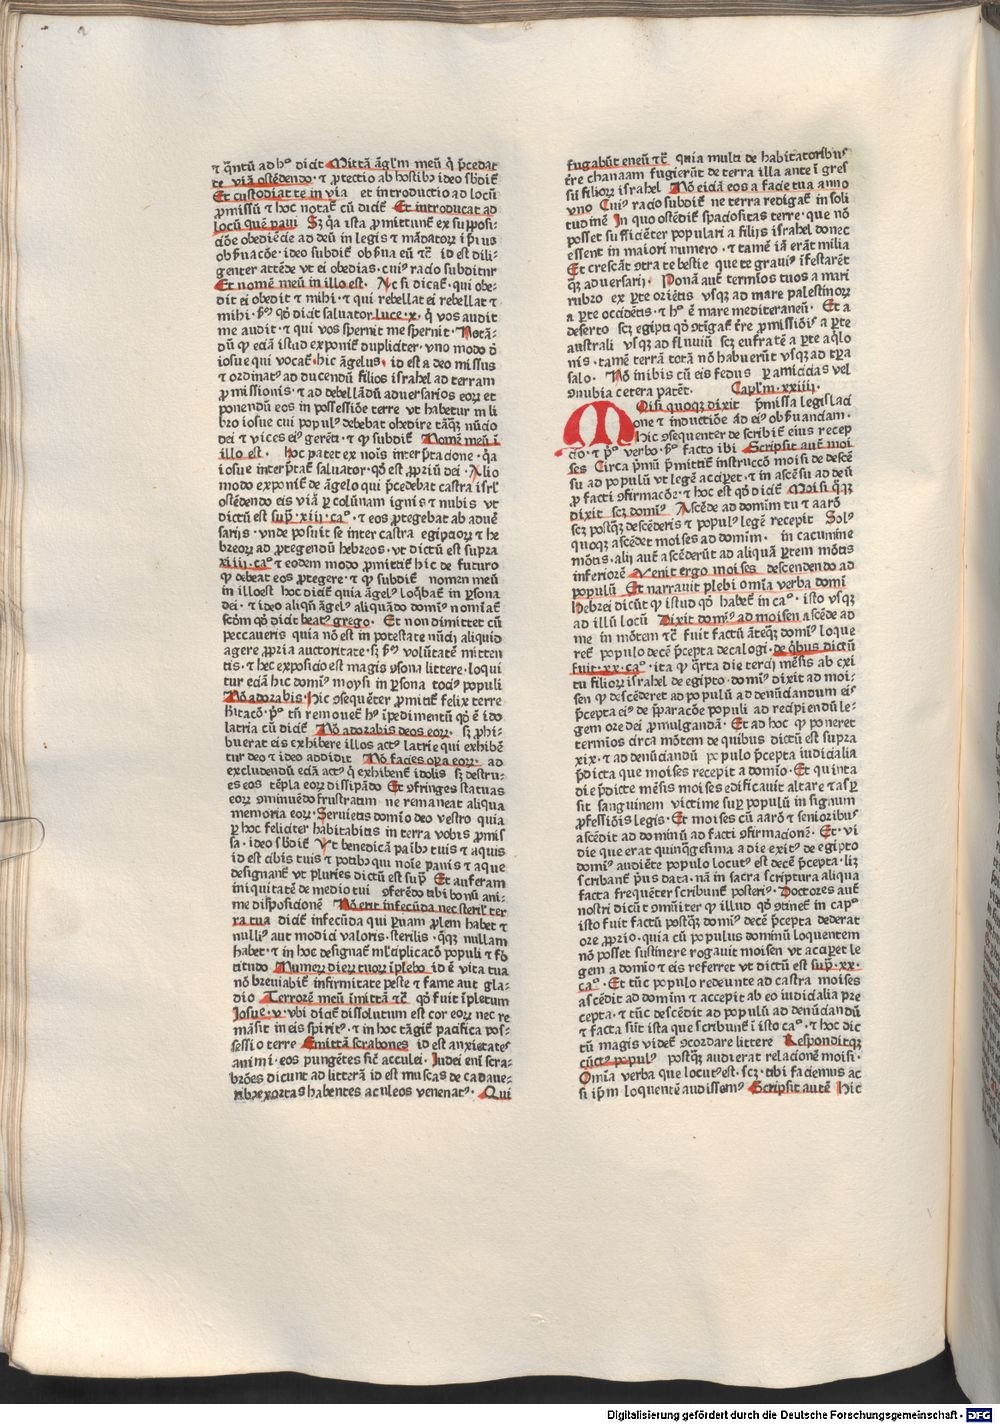 ⁊ q̄ntū ad hº dicit Mittā āgl'm meū q̇ p̄cedat
te viā ostēdendo · ⁊ ꝓtectio ab hostibꝫ ideo sbdit
Et custodiat te in via et introductio ad locū
ꝓmissū ⁊ hoc notat̄ cū dicit̄ Et introducat ad
locū quē paui Sꝫ q̇a ista ꝓmittunt̄ ex supposi-
cōe obediēcie ad deū in legis ⁊ mādatoꝝ ip̄ius
obẜuacōe · ideo subdit̄ obẜua eū ⁊c̄ id est dili-
genter attēde vt ei obedias · cuiꝰ racio subditur
Et nomē meū in illo est. Ac si dicat̄ · qui obe-
dit ei obedit ⁊ mihi · ⁊ qui rebellat ei rebellat ⁊
mihi · ẜm qd̄ dicit saluator luce · x · q̇ vos audit
me audit · ⁊ qui vos spernit me spernit · Notā-
dū ꝙ eciā istud exponit̄ dupliciter · vno modo ꝙ
iosue qui vocat̄ · hic āgelus · id est a deo missus
⁊ ordinatꝰ ad ducendū filios israhel ad terram
ꝓmissionis · ⁊ ad debellādū aduersarios eoꝝ et
ponendū eos in possessiōe terre vt habetur in li
bro iosue cui populꝰ debebat obedire tāqꝫ nūcio
dei ⁊ vices eiꝰ gerēti · ⁊ ꝙ subdit̄ Nomē meū ī
illo est · hoc patet ex nois interp̄tacione · q̇a
iosue interp̄tat̄ saluator · qd̄ est ꝓpriū dei · Alio
modo exponit̄ de āgelo qui p̄cedebat castra isrl'
ostēdendo eis viā ꝑ colūnam ignis ⁊ nubis vt
dictū est sup̄ · xiij · caº · ⁊ eos ꝓtegebat ab aduē
sarijs · vnde posuit se inter castra egipcioꝝ ⁊ he
breoꝝ ad ꝓtegendū hebreos · vt dictū est supra
xiiij · caº ⁊ eodem modo ꝓmittit̄ hic de futuro
ꝙ debeat eos ꝓtegere · ⁊ ꝙ subdit̄ nomen meū
in illoest hoc dicit̄ quia āgelꝰ loq̄bat̄ in ꝑsona
dei · ⁊ ideo aliqn̄ āgelꝰ aliquādo domīꝰ nomīat̄
scd̄m qd̄ dicit beatꝰ grego. Et non dimittet cū
peccaueris quia nō est in potestate nūcij aliquid
agere ꝓpria auctoritate · sꝫ ẜm volūtatē mitten
tis · ⁊ hec exposicio est magis ꝯsona littere · loqui
tur eciā hic domīꝰ moysi in ꝑsona tociꝰ populi
Nō adorabis · Hic ꝯsequēter ꝓmittit̄ felix terre
hītacō · p̄º tn̄ remouet̄ hº īpedimentū qd̄ ē ido
latria cū dicit̄ Nō adorabis deos eoꝝ · sꝫ ꝓhi-
buerat eis exhibere illos actꝰ latrie qui exhibē
tur deo ⁊ ideo addidit Nō facies oꝑa eoꝝ · ad
excludendū eciā actꝰ q̇ exhibent̄ idolis sꝫ destru-
es eos tēpla eoꝝ dissipādo Et ꝯfringes statuas
eoꝝ ꝯminuēdo frustratim ne remaneat aliqua
memoria eoꝝ · Seruietis domīo deo vestro quia
ꝑ hoc feliciter habitabitis in terra vobis ꝓmis
sa · ideo sbdit̄ Vt benedicā panibꝫ tuis ⁊ aquis
id est cibis tuis ⁊ potibꝫ qui noīe panis ⁊ aque
designant̄ vt pluries dictū est sup̄ Et auferam
iniquitatē de medio tui ꝯferēdo tibi bonū ani-
me disposicionē Nō erit infecūda nec steril' ter
ra tua dicit̄ infecūda qui ꝑuam ꝓlem habet ⁊
nulliꝰ aut modici valoris · sterilis · qꝫqꝫ nullam
habet · ⁊ in hoc designat̄ ml'tiplicacō populi ⁊ fe
titudo Numeꝝ dieꝝ tuoꝝ īplebo id ē vita tua
nō breuiabit̄ infirmitate peste ⁊ fame aut gla-
dio Terrorē meū īmittā ⁊c̄ qd̄ fuit īpletum
Josue · v · vbi dicit̄ dissolutum est cor eoꝝ nec re
māsit in eis spiritꝰ · ⁊ in hoc tāgit̄ pacifica pos-
sessio terre Emittā scrabones id est anxietates
animi · eos pungētes sic̄ aculei · Judei eni scra-
brōes dicunt ad litterā id est muscas de cadaue-
ribꝫ exortas habentes aculeos venenatꝰ · Qui
fugabūt eneū ⁊c̄ quia multi de habitatoribus
t̄re chanaam fugierūt de terra illa ante ī gres
sū filioꝝ israhel Nō eiciā eos a facie tua anno
vno Cuiꝰ racio subdit̄ ne terra redigat̄ in soli
tudinē In quo ostēdit̄ spaciositas terre · que nō
posset sufficiēter populari a filijs israhel donec
essent in maiori numero · ⁊ tamē iā erāt milia
Et crescāt ꝯtra te bestie que te grauiꝰ īfestarēt
qꝫ aduersarij · Ponā aut̄ termīos tuos a mari
rubro ex ꝑte oriētis vsqꝫ ad mare palestinoꝝ
a ꝑte occidētis · ⁊ hº ē mare mediteraneū · Et a
deserto scꝫ egipti qd̄ ꝯtīgat̄ t̄re ꝓmissiōis a ꝑte
australi vsqꝫ ad fluuiū scꝫ eufratē a ꝑte aq̇lo
nis · tamē terrā totā nō habuerūt vsqꝫ ad tꝑa
salo. Nō inibis cū eis fedus ꝑ amicicias vel
ꝯnubia cetera patēt. Capl'm · xxiiij ·
Moisi quoqꝫ dixit p̄missa legislaci
one ⁊ inductiōe ad eiꝰ obẜuanciam ·
Hic ꝯsequenter describit̄ eius recep
cio · ⁊ p̄º verbo · ẜm facto ibi Scripsit aut̄ moi
ses Circa p̄mū p̄mittit̄ instruccō moisi de descē
su ad populū vt legē acciperet · ⁊ in ascēsu ad deū
ꝓ facti ꝯfirmacōe · ⁊ hoc est qd̄ dicit̄ Moisi qꝫqꝫ
dixit scꝫ domīꝰ Ascēde ad domīm tu ⁊ aarō
scꝫ postqꝫ descēderis ⁊ populꝰ legē recepit Solꝰ
quoqꝫ ascēdet moises ad domīm · in cacumine
mōtis · alij aut̄ ascēderūt ad aliquā ꝑtem mōtis
inferiorē Venit ergo moises descendendo ad
populū Et narrauit plebi omīa verba domī
Hebrei dicūt ꝙ istud qd̄ habet̄ in caº · isto vsqꝫ
ad illū locū Dixit domīꝰ ad moisen ascēde ad
me in mōtem ⁊c̄ fuit factū āteqꝫ domīꝰ loque
ret̄ populo decē p̄cepta decalogi · de q̇bus dictū
fuit · xx · caº · ita ꝙ q̄rta die tercij mēsis ab exi
tu filioꝝ israhel de egipto · domīꝰ dixit ad moi-
sen ꝙ descēderet ad populū ad denūciandum eis
p̄cepta eiꝰ de p̄paracōe populi ad recipiendū le-
gem ore dei ꝓmulgandā · Et ad hoc ꝙ poneret
termīos circa mōtem de quibus dictū est supra
xix · ⁊ ad denūciandū populo p̄cepta iudicialia
p̄dicta que moises recepit a domīo · Et quinta
die p̄dicte mēsis moises edificauit altare ⁊ asꝑ
sit sanguinem victime suꝑ populū in signum
ꝓfessiōis legis · Et moises cū aarō ⁊ senioribus
ascēdit ad dominū ad facti ꝯfirmacionē · Et · vi
die que erat quinq̇gesima a die exitꝰ de egipto
domīꝰ audiēte populo locutꝰ est decē p̄cepta · liꝫ
scribant̄ p̄us data · nā in sacra scriptura aliqua
facta frequēter scribunt̄ posteriꝰ · Doctores aut̄
nostri dicūt ꝯmūiter ꝙ illud qd̄ ꝯtinet̄ in capº
isto fuit factū postqꝫ domīꝰ decē p̄cepta dederat
ore ꝓprio · quia cū populus dominū loquentem
nō posset sustinere rogauit moisen vt acciperet le
gem a domīo ⁊ eis referret vt dictū est sup̄ · xx ·
caº · Et tūc populo redeunte ad castra moises
ascēdit ad domīm ⁊ accepit ab eo iudicialia pre
cepta · ⁊ tūc descēdit ad populū ad denūciandū
⁊ facta sūt ista que scribunt̄ ī isto caº · ⁊ hoc dic
tū magis videt̄ ꝯcordare littere Responditqꝫ
cūctꝰ populꝰ postqꝫ audierat relacionē moisi ·
Omīa verba que locutꝰest · scꝫ · tibi faciemus ac
si ip̄m loquentē audissemꝰ Scripsit autē Hic
Digitalisierung gefördert durch die Deutsche Forschungsgemeinschaft - DFG